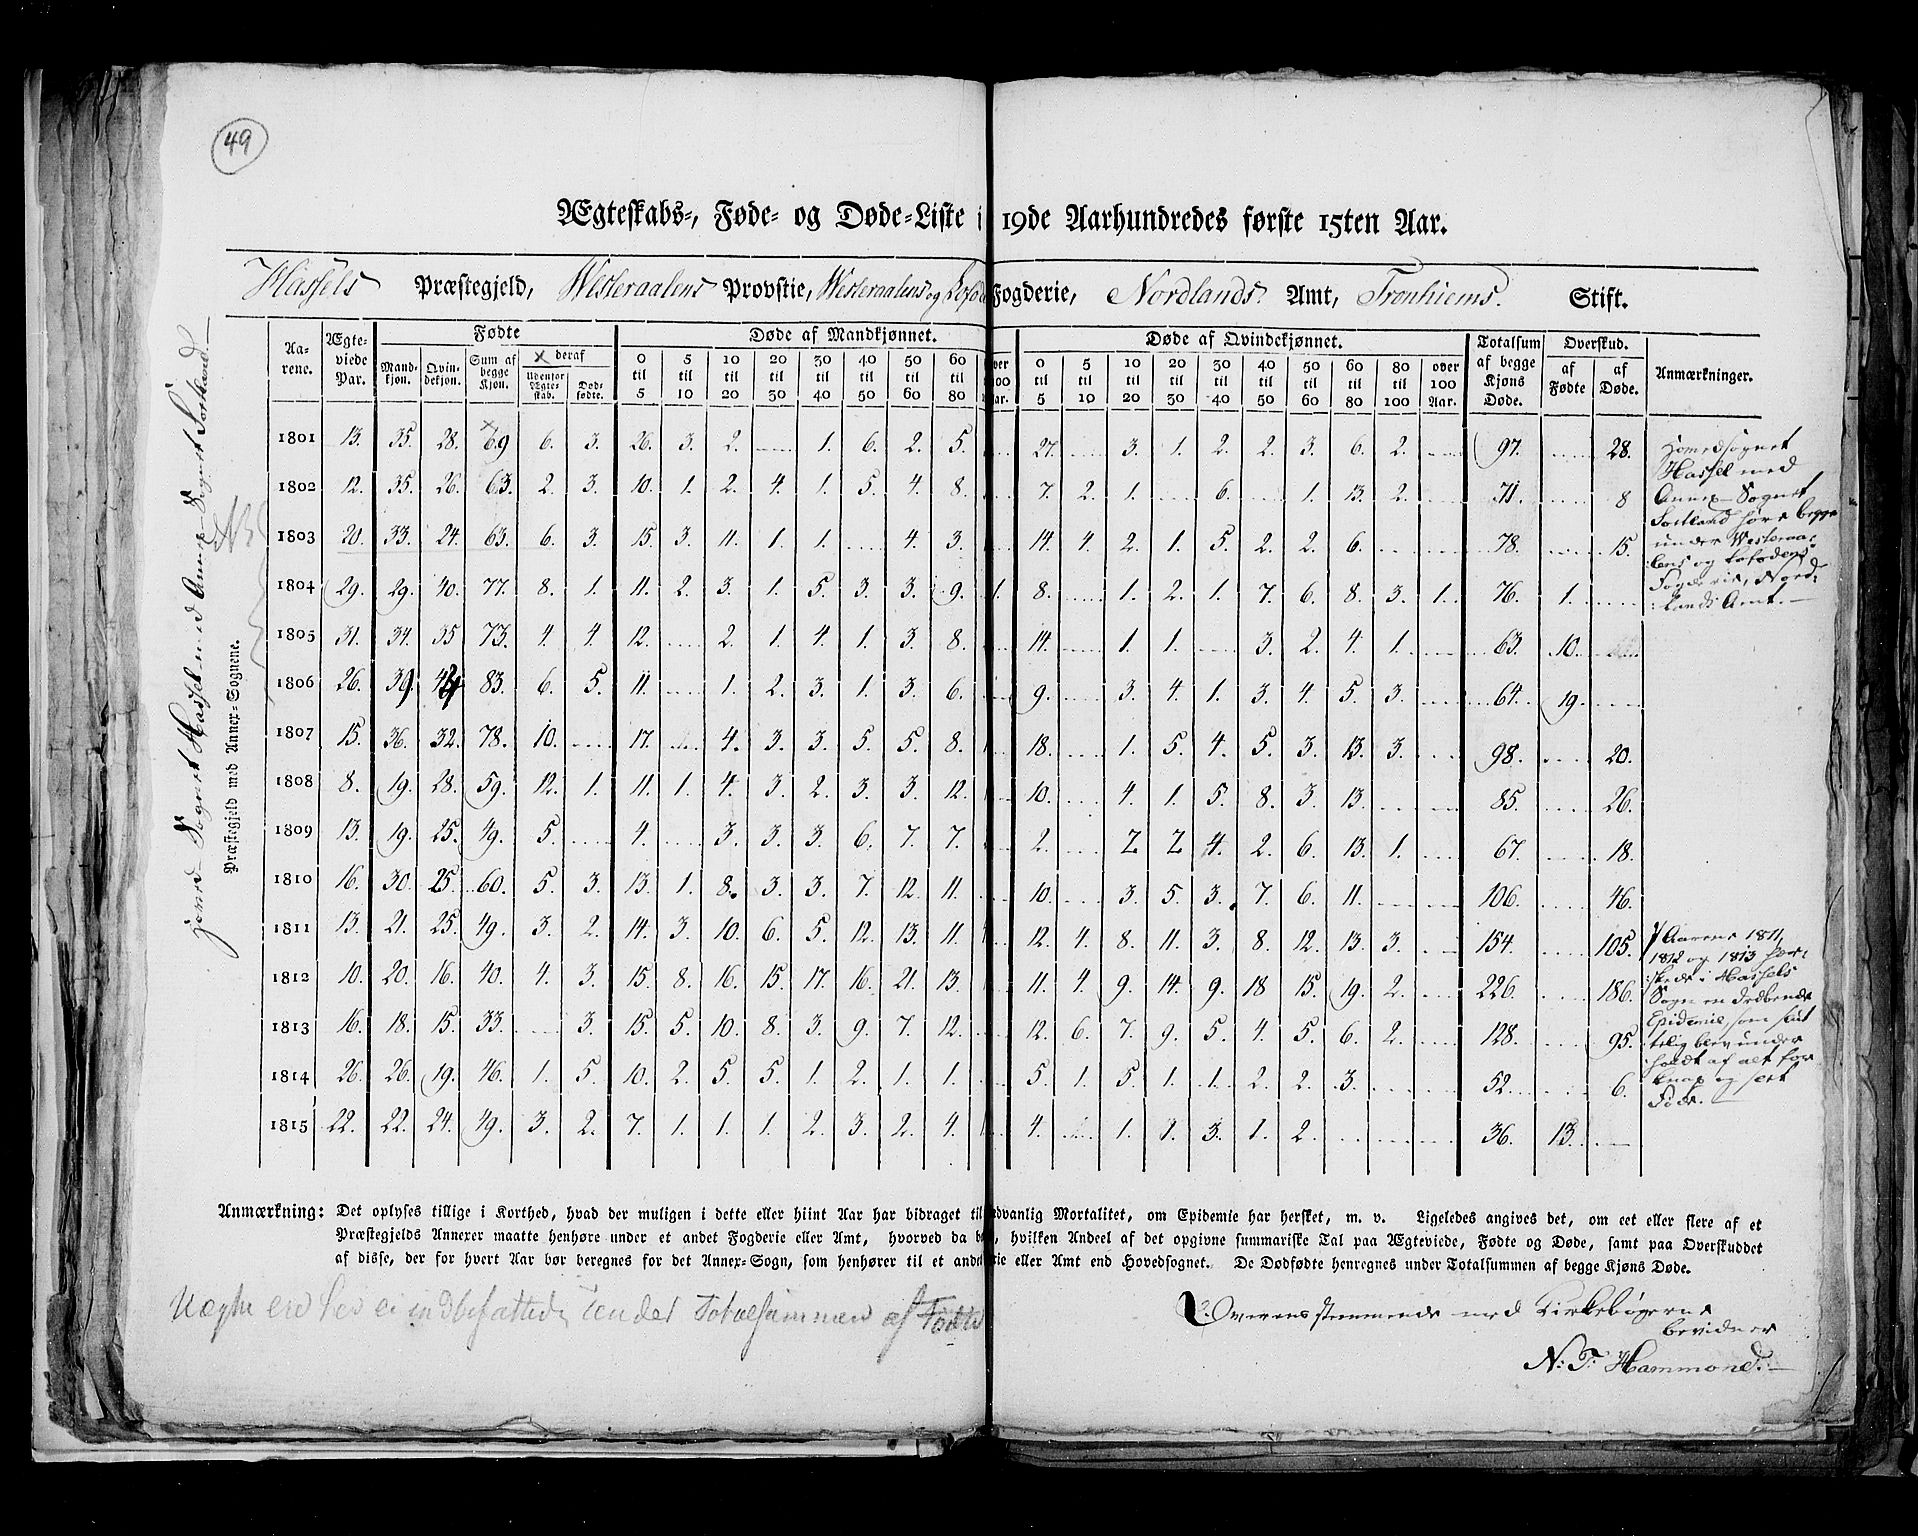 49
Ægteskabs-, Føde- og Døde-Liste i 19de Aarhundredes første 15ten Aar.
Hassels Præstegjeld, Westeraalens Provstie, Westeraalens og Lofod Fogderie, Nordlands Amt, Tronhiems Stift.
Aa- Ægte- Fødte Døde af Mandkjønnet. Døde af Qvindekjønnet. Totalsum Overskud. Anmærkninger.
rene. viede Mand- Qvin- Sum af × deraf 0 5 10 20 30 40 50 60 over 0 5 10 20 30 40 50 60 80 over af begge af af
Par. kjøn. dekjøn. begge Udenfor Død- til til til til til til til til 100 til til til til til til til til til 100 Kjøns Fødte Døde.
Kjøn. Ægte- fødte. 5 10 20 30 40 50 60 80 ar. 5 10 20 30 40 50 60 80 100 Aar. Døde.
skab.
1801 13. 35. 28. × 69 6. 3. 26. 3. 2. 1. 6. 2. 5. 27. 3. 1. 2. 2. 3. 6. 2. 97. 28.
1802 12. 35. 26. 63. 2. 3. 10. 1. 2. 4. 1. 5. 4. 8. 7. 2. 1. 6. 1. 13. 2. 71. 8
1803 20. 33. 24. 63. 6. 3. 15. 3. 11. 1. 1. 4. 3. 14. 4. 2. 1. 5. 2. 2. 6. 78. 15.
1804 29. 29. 40. 77. 8. 1. 11. 2. 3. 1. 5. 3. 3. 9. 1. 8. 1. 2. 1. 7. 6. 8. 3. 1. 76. 1.
1805 31. 34. 35 73. 4. 4. 12. 2. 1. 4. 1. 3. 8. 14. 1. 1. 3. 2. 4. 1. 63. 10.
1806 26. 39 83. 6. 5. 11. 1. 2. 3. 1. 3. 6. 9. 3. 4. 1. 3. 4. 5. 3. 64. 19.
1807 15. 36. 32. 78. 10. 17. 4. 3. 3. 5. 5. 8. 18. 1. 5. 4. 5. 3. 13. 3. 98. 20.
1808 8. 19. 28. 59. 12. 1. 11. 1. 4. 3. 2. 3. 3. 12. 10. 4. 1. 5. 8. 3. 13. 85. 26.
1809 13. 19. 25. 49. 5. 4. 3. 3. 3. 6. 7. 7. 2. 2. 2. 4. 2. 6. 13. 1. 67. 18.
1810 16. 30. 25. 60. 5. 3. 13. 1. 8. 3. 3. 7. 12. 11. 10. 3. 5. 3. 7. 6. 11. 106. 46.
1811 13. 21. 25. 49. 3. 2. 14. 3. 10. 6. 5. 12. 13. 11. 12. 4. 8. 11. 3. 8. 12. 13. 3. 154. 105.
1812 10. 20. 16. 40. 4. 3. 15. 8. 16. 15. 17. 16. 21. 13. 11. 4. 9. 14. 9. 18 15. 19. 2. 226. 186.
1813 16. 18. 15. 33. 3. 15. 5. 10. 8. 3. 9. 7. 12. 12. 6. 7. 9. 5. 4. 5. 6. 2. 128. 95.
1814 26. 26. 19. 46. 1. 5. 10. 2. 5. 5. 1. 2. 1. 1. 5. 1. 5. 1. 1. 2. 2. 3. 52. 6.
1815 22. 22. 24. 49. 3. 2. 7. 1. 1. 1. 2. 3. 2. 4. 4. 1. 1. 3. 1. 2. 36. 13.
Hovedsognet
Hassel med
Annex-Sognet
Sortland høre begge
under Westeraa-
lens og Lofodens
Fogderie, Nord-
lands Amt.
Aarene 1811,
1812 og 1813 her-
skede i Hassels
Sogn en dræbende
Epidemie, som
under
holdt af alt for
knap og slet
Føde.
Sognet Hassel med Annex-Sognet Sortland
Præstegjeld med Annex-Sognene.
NB
Anmærkning: Det oplyses tillige i Korthed, hvad der muligen i dette eller hiint Aar har bidraget til dvanlig Mortalitet, om Epidemie har hersket, m. v. Ligeledes angives det, om eet eller flere af et
Præstegjelds Annexer maatte henhøre under et andet Fogderie eller Amt, hvorved da b , hvilken Andeel af det opgivne summariske Tal paa Ægteviede, Fødte og Døde, samt paa Overskuddet
af disse, der for hvert Aar bør beregnes for det Annex-Sogn, som henhører til et and rie eller Amt end Hovedsognet. De Dødfødte henregnes under Totalsummen af begge Kjøns Døde.
Uægte ere her ei indbefattede under Totalsummen af Fødte
Overensstemmende med Kirkebøgerne
bevidner
N: F: Hammond.